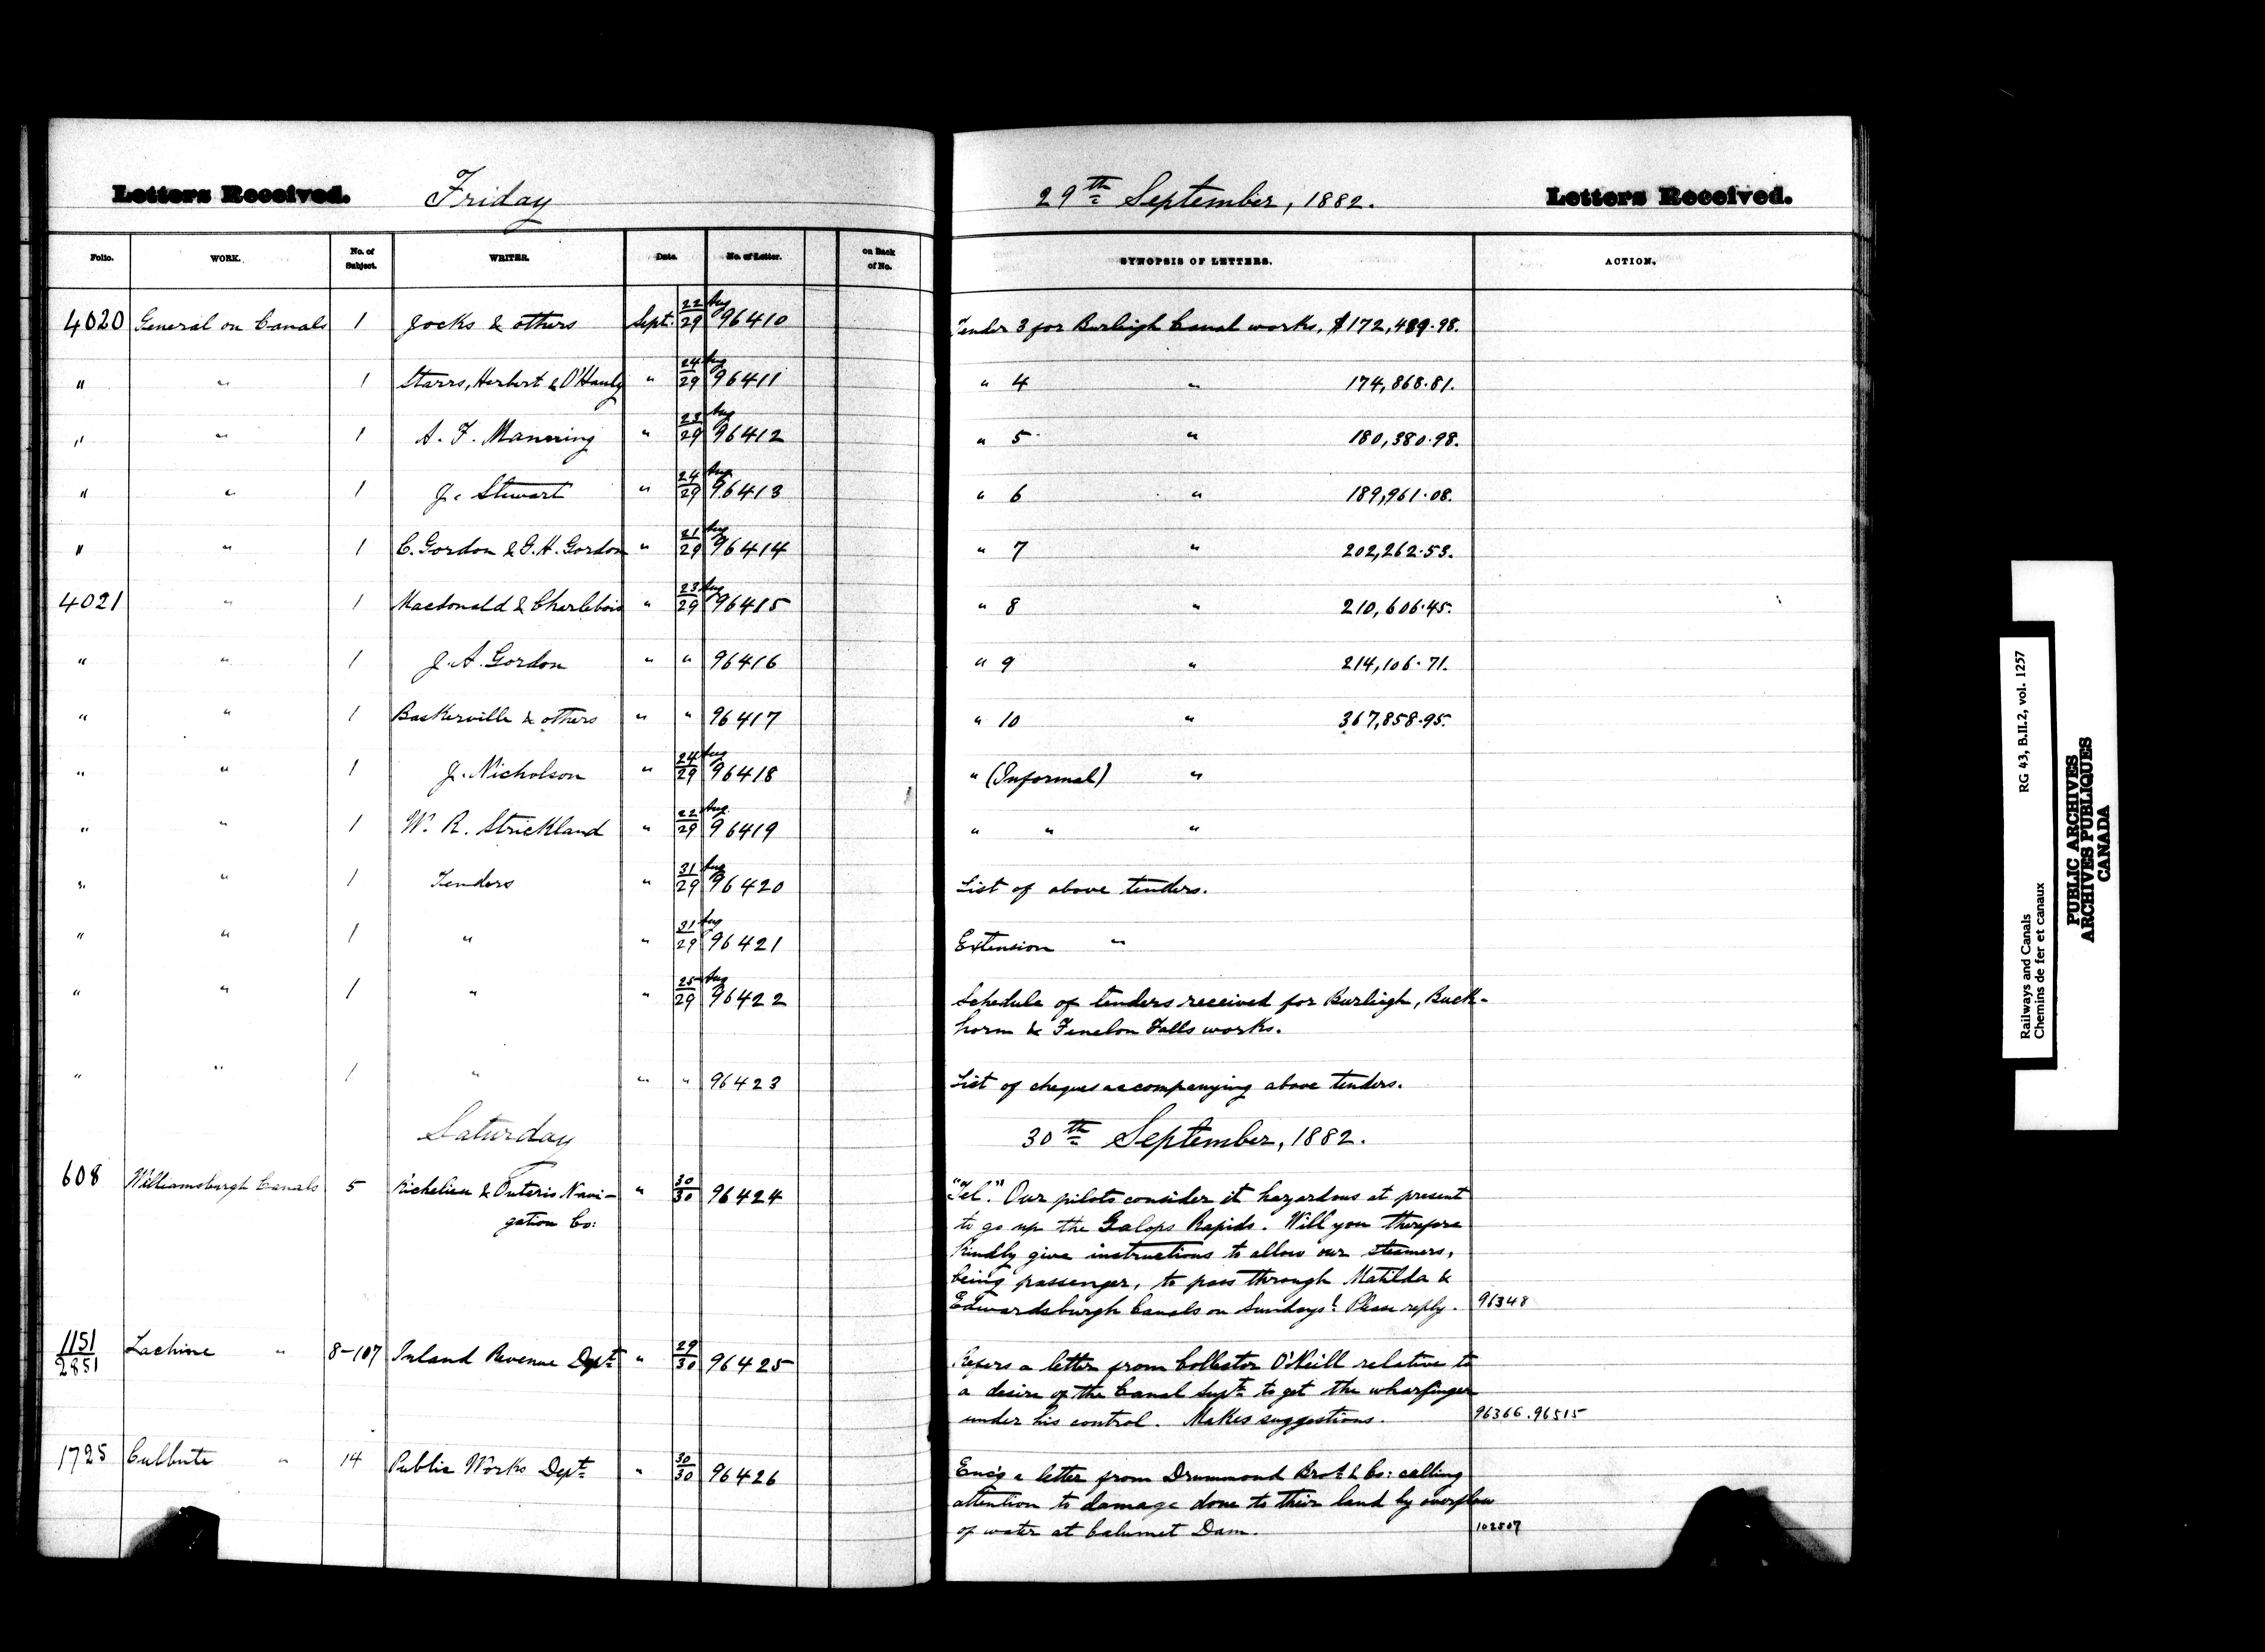 Letters Received. Friday 29th September, 1882. Letters Received.
Folio. WORK. No. of Subject. WRITER. Date. No. of Letter. on Back of No. SYNOPSIS OF LETTERS. ACTION.
4020 General on Canals 1 Jocks & others Sept. 22 Aug 29 96410 Tender 3 for Burleigh Canal works, $172,489.98.
" " 1 Starrs, Herbert & O'Hanly " 24 Aug 29 96411 " 4 " 174,868.81.
" " 1 A. F. Manning " 23 Aug 29 96412 " 5 " 180,380.98.
" " 1 J. Stewart " 24 Aug 29 96413 " 6 " 189,961.08.
" " 1 C. Gordon & G. H. Gordon " 21 Aug 29 96414 " 7 " 202,262.53.
4021 " 1 Macdonald & Charlebois " 23 Aug 29 96415 " 8 " 210,606.45.
" " 1 J. A. Gordon " " 96416 " 9 " 214,106.71.
" " 1 Baskerville & others " " 96417 " 10 " 367,858.95.
" " 1 J. Nicholson " 24 Aug 29 96418 " (Informal) "
" " 1 W. R. Strickland " 22 Aug 29 96419 " " "
" " 1 Tenders " 31 Aug 29 96420 List of above tenders.
" " 1 " " 31 Aug 29 96421 Extension "
" " 1 " " 25 Aug 29 96422 Schedule of tenders received for Burleigh, Buck-
horn & Fenelon Falls works.
" " 1 " " " 96423 List of cheques accompanying above tenders.
Saturday 30th September, 1882.
608 Williamsburgh Canals 5 Richelieu & Ontario Navi- " 30 30 96424 "Tel." Our pilots consider it hazardous at present
gation Co: to go up the Galops Rapids. Will you therefore
kindly give instructions to allow our steamers,
being passenger, to pass through Matilda &
Edwardsburgh Canals on Sundays? Please reply. 96348
1151 2851 Lachine " 8-107 Inland Revenue Dept " 29 30 96425 Refers a letter from Collector O'Neill relative to
a desire of the Canal Supt to get the wharfinger
under his control. Makes suggestions. 96366. 96515
1725 Culbute " 14 Public Works Dept " 30 30 96426 Enc'g a letter from Drummond Bros & Co: calling
attention to damage done to their land by overflow
of water at Calumet Dam. 102507
Railways and Canals RG 43, B.II.2, vol. 1257
Chemins de fer et canaux
PUBLIC ARCHIVES
ARCHIVES PUBLIQUES
CANADA